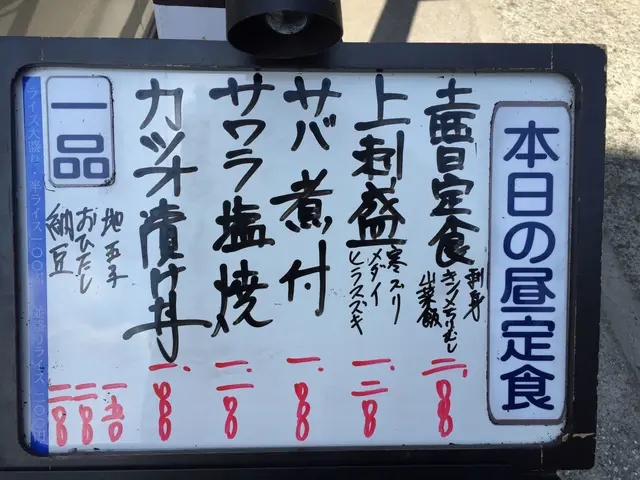 本日の昼定食
定食
刺身
山菜飯
二、〇〇〇
上刺盛
寒ブリ
メダイ
ヒラスズキ
一、二〇〇
サバ煮付
一、〇〇〇
サワラ塩焼
一、一〇〇
カツオ漬け丼
一、〇〇〇
一品
地玉子
一五〇
おひたし
二〇〇
納豆
二〇〇
ライス大盛り・半ライス一〇〇円
ライス二〇〇円